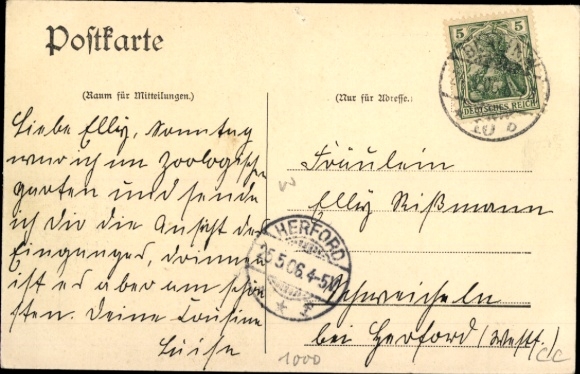 Postkarte
(Raum für Mitteilungen.)
Liebe Elly, Sonntag
war ich im Zoologisch
garten und sende
ich dir die Ansicht des
Einganges, drinnen
ist es aber am schön
sten. Deine Cousine
Luise
(Nur für Adresse.)
5 5
DEUTSCHES REICH
Fräulein
Elly Rißmann
HERFORD
26.5.06.4-5N
Schweicheln
bei Herford (Westf.)
1000